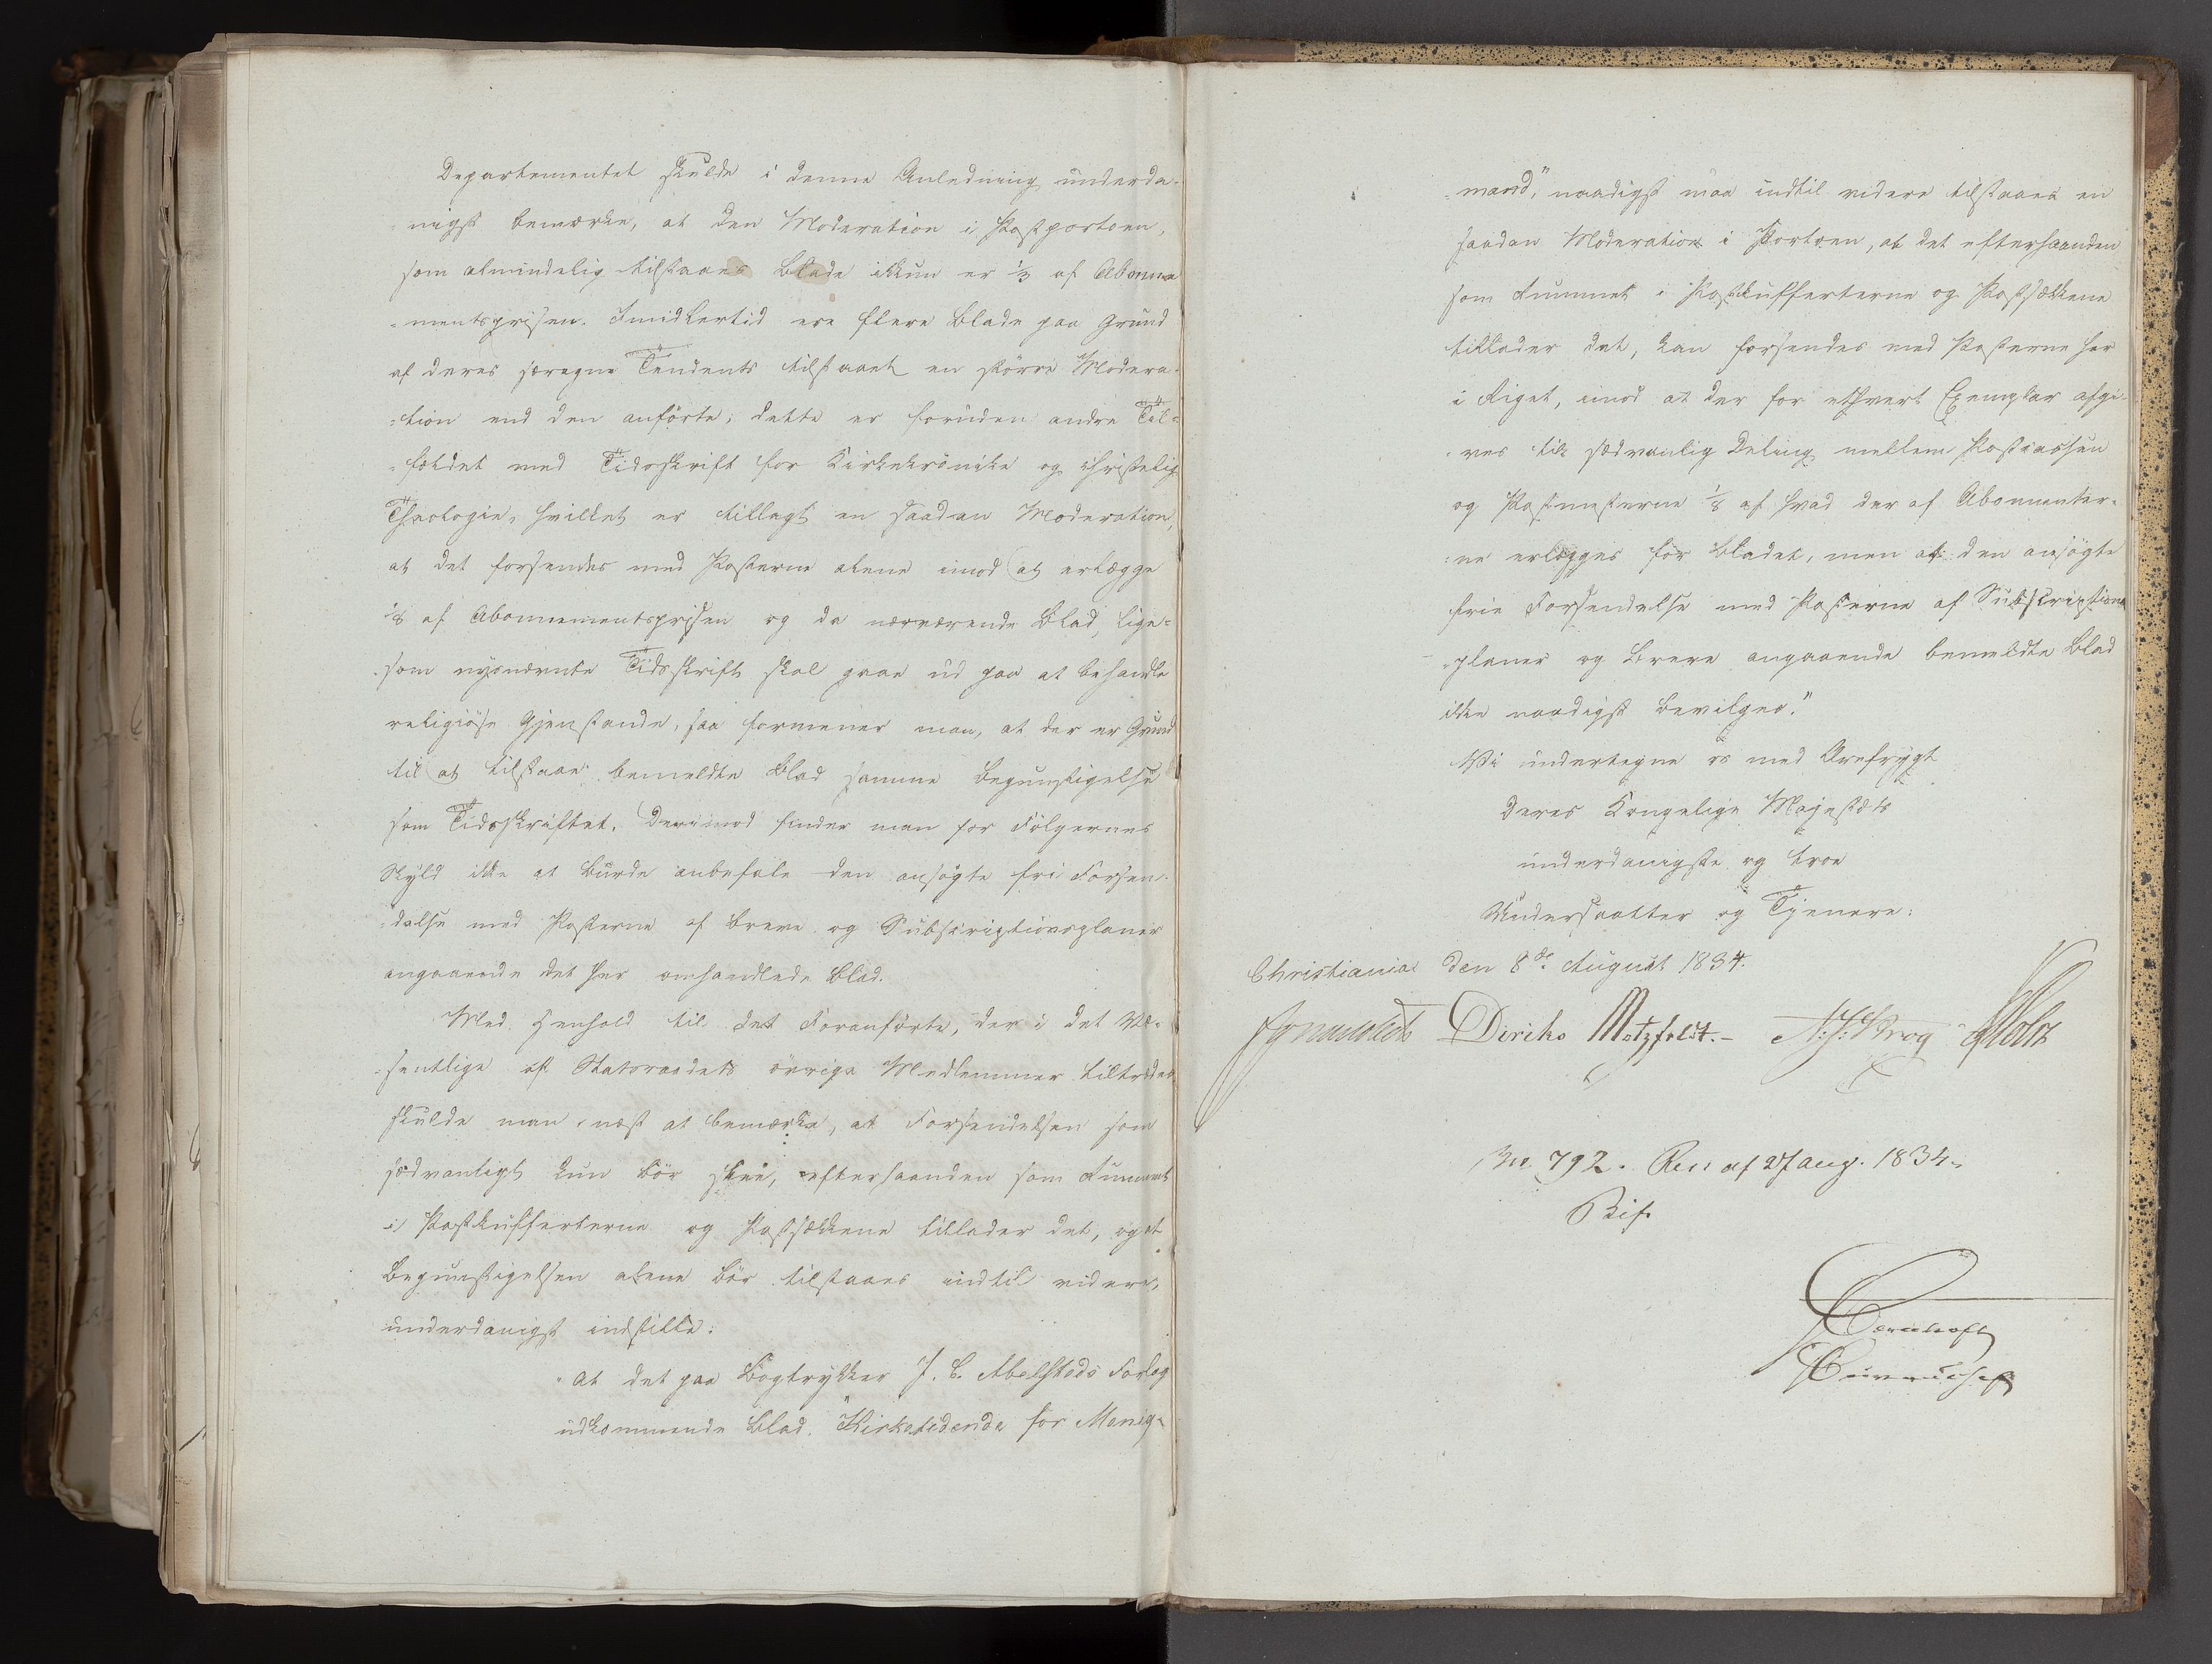 Departementet skulde i denne Anledning underda-
nigst bemærke, at den Moderation i Postportoen,
som almindelig tilstaaes Blade ikkun er 1/3 af Abonne
=mentsprisen. Imidlertid ere flere Blade paa Grund
af deres særegne Tendents tilstaaet en større Modera-
=tion end den anførte; dette er foruden andre Til=
=fældet med Tidsskrift for Kirkekrönike og christelig
Theologie, hvilket er tillagt en saadan Moderation,
at det forsendes med Posterne alene imod at erlægge
1/8 af Abonnementsprisen og da nærværende Blad, lige=
som nysnævnte Tidsskrift skal gaae ud paa at behandle
religiöse Gjenstande, saa formener man, at der er Grund
til at tilstaae bemeldte Blad samme Begunstigelse
som Tidsskriftet. Derimod finder man for Fölgernes
Skyld ikke at burde anbefale den ansögte fri Forsen-
=delse med Posterne af Breve og Subscriptionsplaner
angaaende det her omhandlede Blad.
Med Henhold til det Foranförte, der i det Væ-
sentlige af Statsraadets övrige Medlemmer tiltrædes
skulde man, næst at bemærke, at Forsendelsen som
sædvanligt kun bör skee, efterhaanden som Rummet
i Postkufferterne og Postsækkene tillader det, og at
Begunstigelsen alene bör tilstaaes indtil videre,
underdanigst indstille:
"At det paa Bogtrykker J. C. Abelsteds Forlag
udkommende Blad "Kirketidende for Menig-
=mand," naadigst maa indtil videre tilstaaes en
saadan Moderation i Portoen, at det efterhaanden
som Rummet i Postkufferterne og Postsækkene
tillader det, kan forsendes med Posterne her
i Riget, imod at der for ethvert Exemplar afgi-
ves til sædvanlig Deling mellem Postcassen
og Postmesterne 1/8 af hvad der af Abonnenter-
=ne erlægges for Bladet, men at den ansögte
frie Forsendelse med Posterne af Subscriptions
=planer og Breve angaaende bemeldte Blad
ikke naadigst bevilges."
Vi undertegne os med Ærefrygt
Deres Kongelige Majestæts
underdanigste og troe
Undersaatter og Tjenere:
Christiania den 8de August 1834.
Diriks Motzfeldt. N: J: Krog Holst
No 792. Res: af 27 Aug. 1834.
Bif.